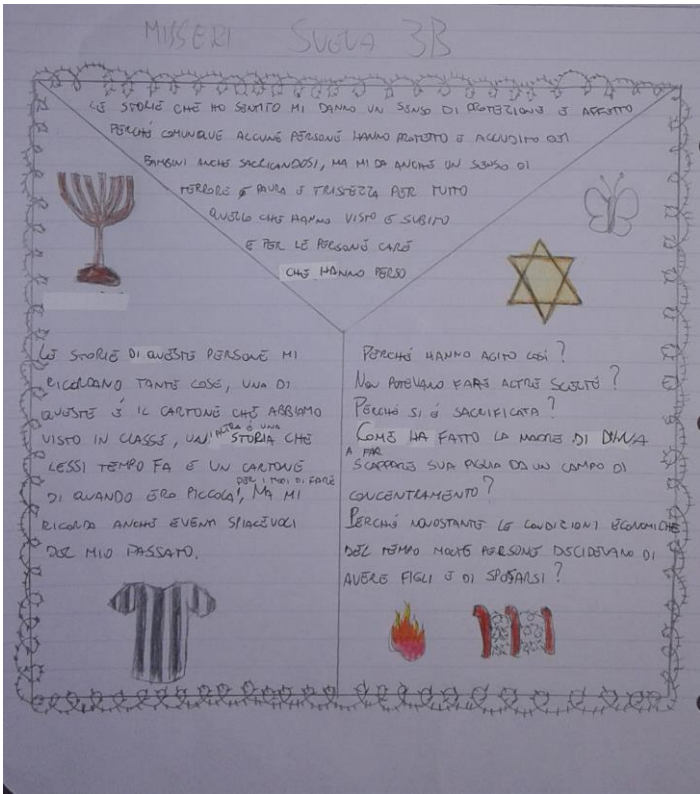 MISSERI SVEVA 3B
LE STORIE CHE HO SENTITO MI DANNO UN SENSO DI PROTEZIONE E AFFETTO
PERCHÉ COMUNQUE ALCUNE PERSONE HANNO PROTETTO E ACCUDITO
BAMBINI ANCHE SACRICANDOSI, MA MI DA ANCHE UN SENSO DI
TERRORE E PAURA E TRISTEZZA PER TUTTO
QUELLO CHE HANNO VISTO E SUBITO
E PER LE PERSONE CARE
CHE HANNO PERSO
LE STORIE DI QUESTE PERSONE MI
RICORDANO TANTE COSE, UNA DI
QUESTE É IL CARTONE CHE ABBIAMO
VISTO IN CLASSE, UN'ALTRA É UNA STORIA CHE
LESSI TEMPO FA E UN CARTONE
DI QUANDO ERO PICCOLA, PER I MODI DI FARE MA MI
RICORDA ANCHE EVENTI SPIACEVOLI
DEL MIO PASSATO.
PERCHÉ HANNO AGITO COSÌ?
NON POTEVANO FARE ALTRE SCELTE?
PERCHÉ SI É SACRIFICATA?
COME HA FATTO LA MADRE DI DINA
A FAR SCAPPARE SUA FIGLIA DA UN CAMPO DI
CONCENTRAMENTO?
PERCHÉ NONOSTANTE LE CONDIZIONI ECONOMICHE
DEL TEMPO MOLTE PERSONE DECIDEVANO DI
AVERE FIGLI E DI SPOSARSI?